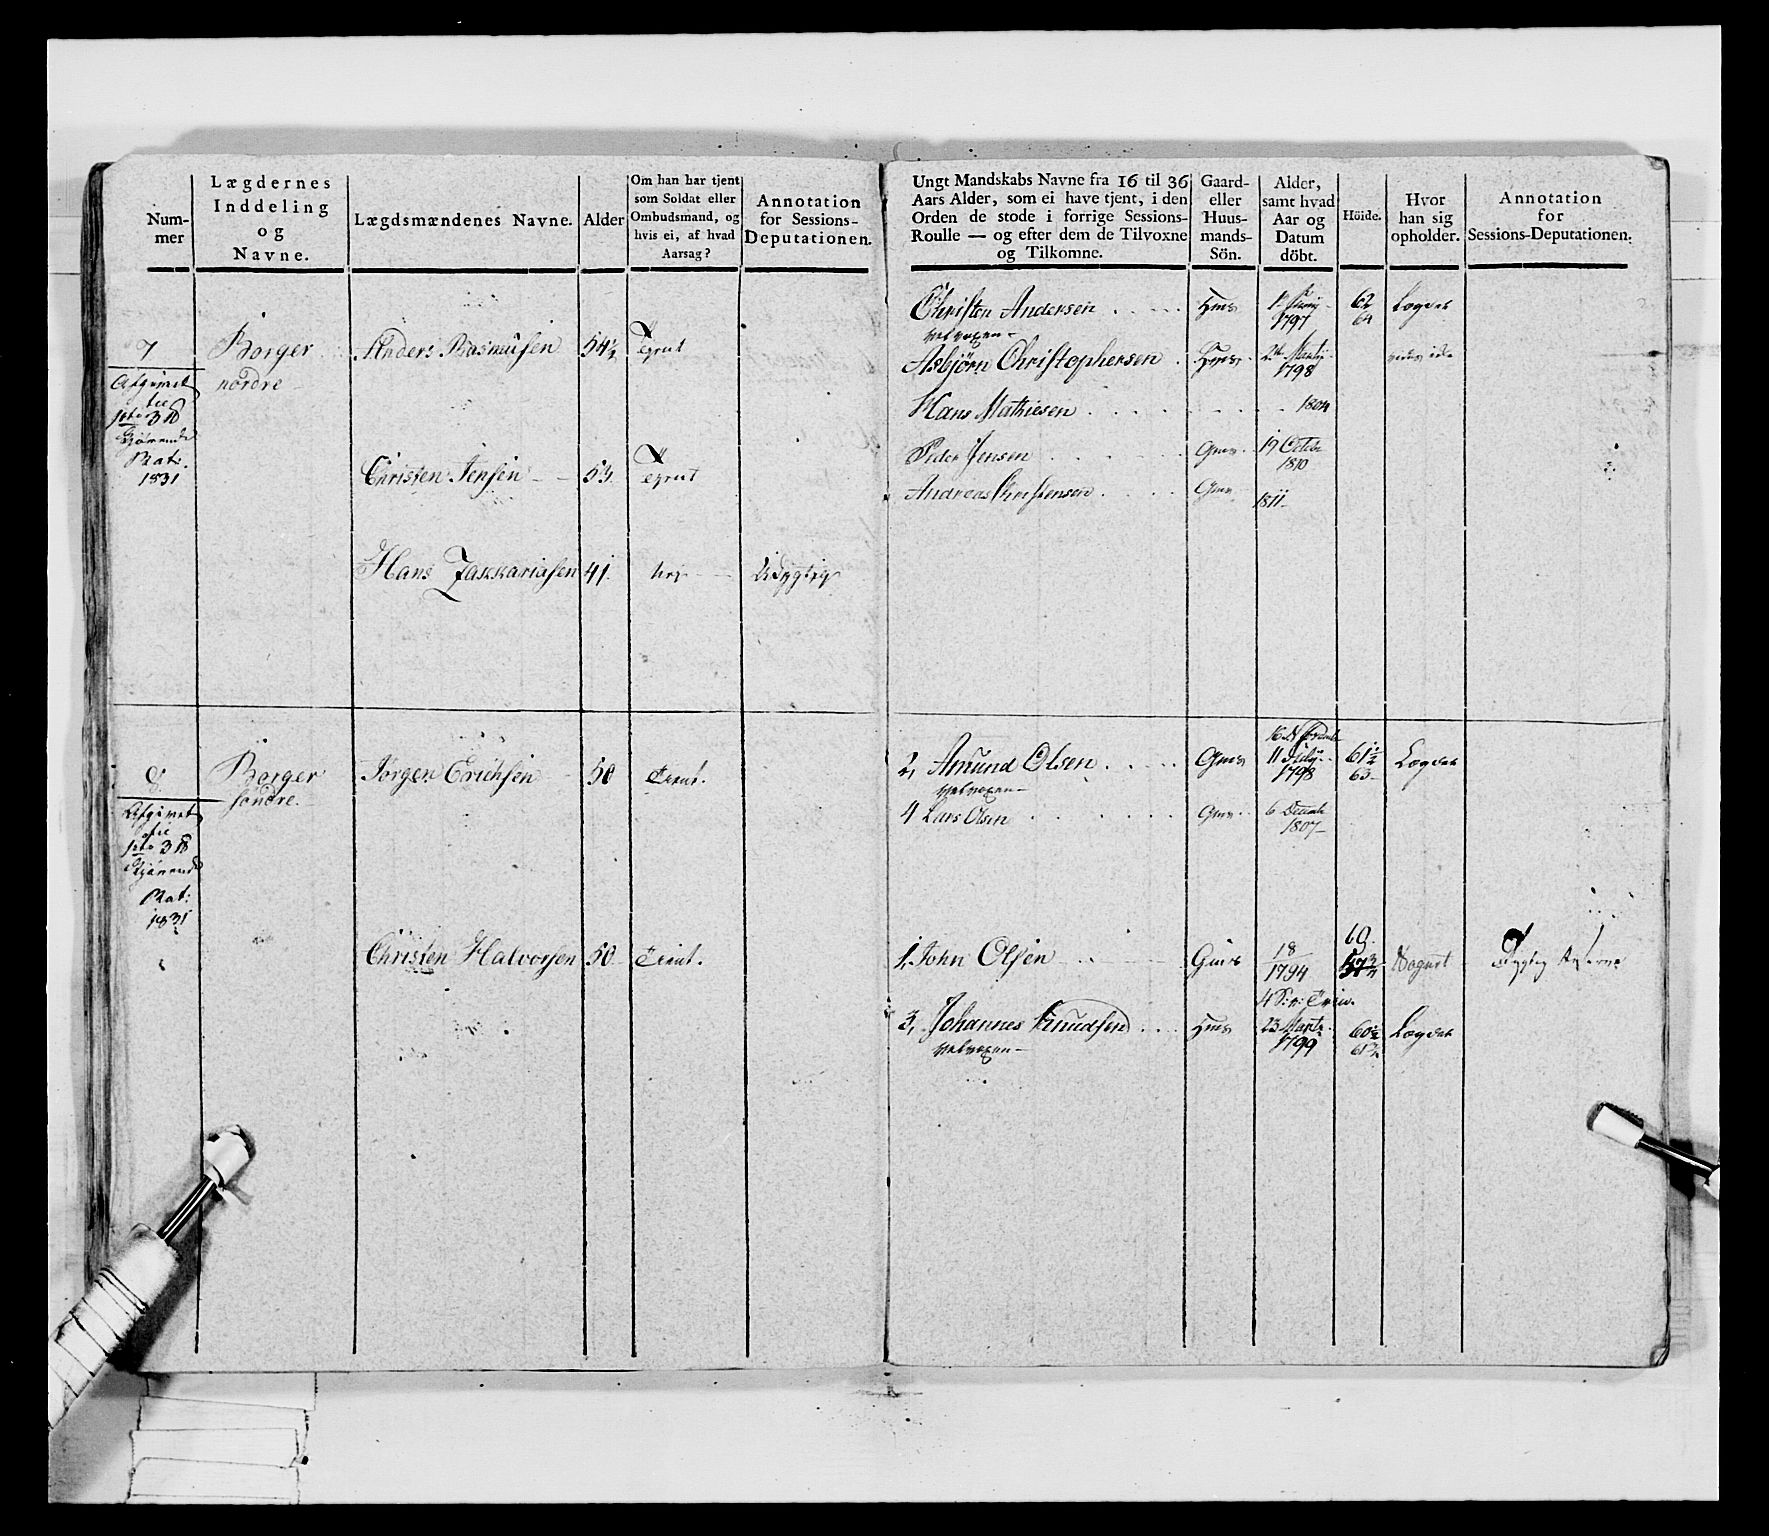 Num-
mer
Lægdernes
Inddeling
og
Navne.
Lægdsmændenes Navne.
Alder
Om han har tjent
som Soldat eller
Ombudsmand, og
hvis ei, af hvad
Aarsag?
Annotation
for Sessions-
Deputationen.
7
Borger
nordre
Afgivet
til
3
Mat:
1831
Anders Rasmusen 54½
Christen Jensen 53.
Hans Zakkariasen 41. Udygtig
8.
Borger
søndre.
Afgivet
til
3
Mat:
1831
Jørgen Erichsen 50 tient.
Christen Halvorsen 50 tient.
Ungt Mandskabs Navne fra 16 til 36
Aars Alder, som ei have tjent, i den
Orden de stode i forrige Sessions-
Roulle — og efter dem de Tilvoxne
og Tilkomne.
Gaard-
eller
Huus-
mands-
Sön.
Alder,
samt hvad
Aar og
Datum
döbt.
Höide.
Hvor
han sig
opholder.
Annotation
for
Sessions-Deputationen.
Christen Andersen Hms 1797 62 64 Lægdet
Velvoxen
Asbjørn Christophersen Hms 24 Martij 1798
Hans Mathiesen 1804
Peder Jensen Gms 19 Octobr 1810
Andreas Christensen Gms 1811
2, Amund Olsen Gms 11 Julij 1798 61½ 63 Lægdet
Velvoxen
4 Lars Olsen Gms 6 Decembr 1807
1, John Olsen Gms 18/1794 60. 57¾ Udygtig
3, Johannes Knudsen Hms 23 Marts 1799 60½ 61¾ Lægdet
Velvoxen